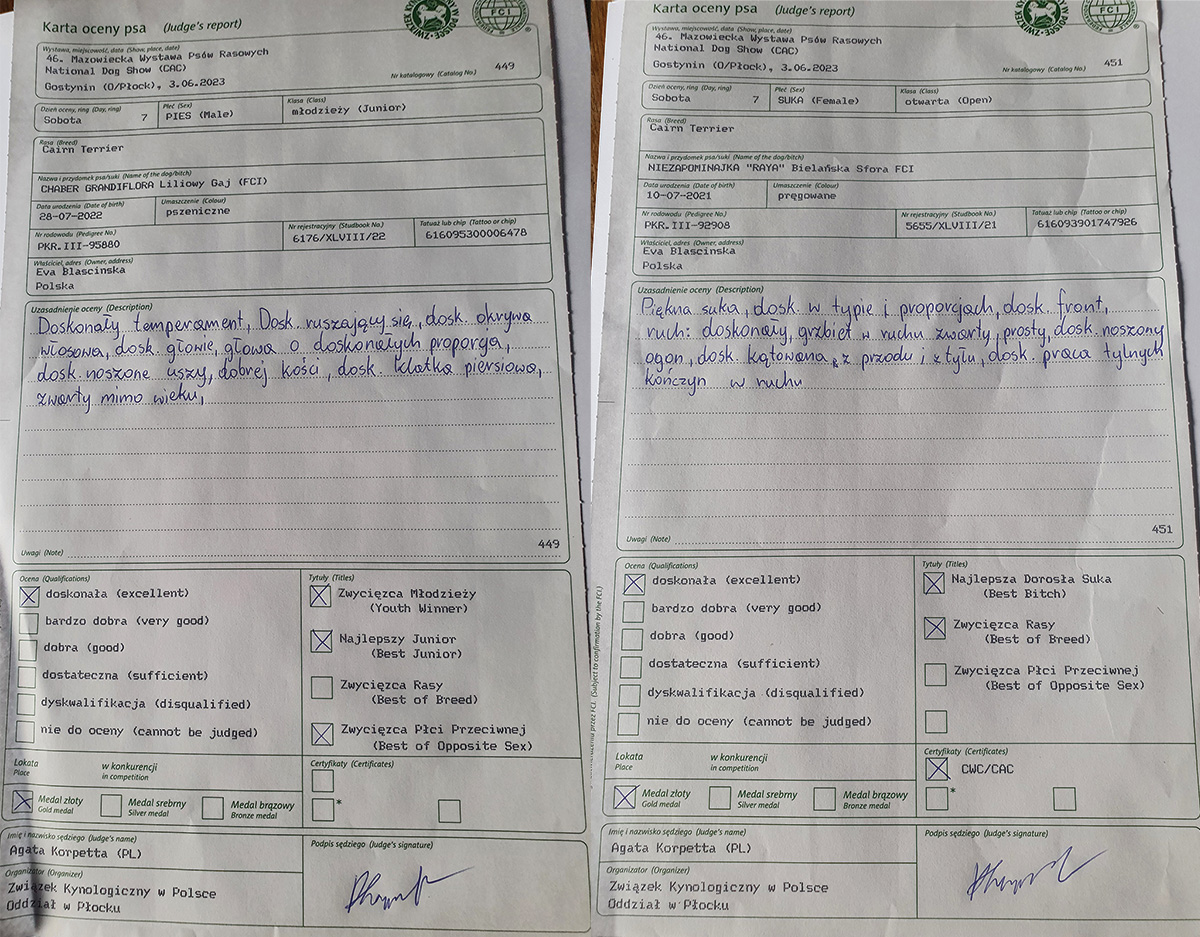 Karta oceny psa (Judge's report)
FCI
Wystawa, miejscowość, data (Show, place, date)
46. Mazowiecka Wystawa Psów Rasowych
National Dog Show (CAC)
Gostynin (O/Płock), 3.06.2023
Nr katalogowy (Catalog No.) 449
Dzień oceny, ring (Day, ring)
Sobota 7
Płeć (Sex)
PIES (Male)
Klasa (Class)
młodzieży (Junior)
Rasa (Breed)
Cairn Terrier
Nazwa i przydomek psa/suki (Name of the dog/bitch)
CHABER GRANDIFLORA Liliowy Gaj (FCI)
Data urodzenia (Date of birth)
28-07-2022
Umaszczenie (Colour)
pszeniczne
Nr rodowodu (Pedigree No.)
PKR.III-95880
Nr rejestracyjny (Studbook No.)
6176/XLVIII/22
Tatuaż lub chip (Tattoo or chip)
616095300006478
Właściciel, adres (Owner, address)
Eva Blascinska
Polska
Uzasadnienie oceny (Description)
Doskonały temperament, Dosk. ruszający się, dosk. okrywa
włosowa, dosk. głowie, głowa o doskonałych proporcja,
dosk. noszone uszy, dobrej kości, dosk. klatka piersiowa,
zwarty mimo wieku,
449
Uwagi (Note)
Ocena (Qualifications)
doskonała (excellent)
bardzo dobra (very good)
dobra (good)
dostateczna (sufficient)
dyskwalifikacja (disqualified)
nie do oceny (cannot be judged)
Tytuły (Titles)
Zwycięzca Młodzieży
(Youth Winner)
Najlepszy Junior
(Best Junior)
Zwycięzca Rasy
(Best of Breed)
Zwycięzca Płci Przeciwnej
(Best of Opposite Sex)
Lokata
Place
w konkurencji
in competition
Certyfikaty (Certificates)
*
Medal złoty
Gold medal
Medal srebrny
Silver medal
Medal brązowy
Bronze medal
Imię i nazwisko sędziego (Judge's name)
Agata Korpetta (PL)
Podpis sędziego (Judge's signature)
Organizator (Organizer)
Związek Kynologiczny w Polsce
Oddział w Płocku
Karta oceny psa (Judge's report)
FCI
Wystawa, miejscowość, data (Show, place, date)
46. Mazowiecka Wystawa Psów Rasowych
National Dog Show (CAC)
Gostynin (O/Płock), 3.06.2023
Nr katalogowy (Catalog No.) 451
Dzień oceny, ring (Day, ring)
Sobota 7
Płeć (Sex)
SUKA (Female)
Klasa (Class)
otwarta (Open)
Rasa (Breed)
Cairn Terrier
Nazwa i przydomek psa/suki (Name of the dog/bitch)
NIEZAPOMINAJKA "RAYA" Bielańska Sfora FCI
Data urodzenia (Date of birth)
10-07-2021
Umaszczenie (Colour)
pręgowane
Nr rodowodu (Pedigree No.)
PKR.III-92908
Nr rejestracyjny (Studbook No.)
5655/XLVIII/21
Tatuaż lub chip (Tattoo or chip)
616093901747926
Właściciel, adres (Owner, address)
Eva Blascinska
Polska
Uzasadnienie oceny (Description)
Piękna suka, dosk. w typie i proporcjach, dosk. front,
ruch: doskonały, grzbiet w ruchu zwarty, prosty, dosk. noszony
ogon, dosk. kątowana z przodu i z tyłu, dosk. praca tylnych
kończyn w ruchu
451
Uwagi (Note)
Ocena (Qualifications)
doskonała (excellent)
bardzo dobra (very good)
dobra (good)
dostateczna (sufficient)
dyskwalifikacja (disqualified)
nie do oceny (cannot be judged)
Tytuły (Titles)
Najlepsza Dorosła Suka
(Best Bitch)
Zwycięzca Rasy
(Best of Breed)
Zwycięzca Płci Przeciwnej
(Best of Opposite Sex)
Lokata
Place
w konkurencji
in competition
Certyfikaty (Certificates)
CWC/CAC
*
Medal złoty
Gold medal
Medal srebrny
Silver medal
Medal brązowy
Bronze medal
Imię i nazwisko sędziego (Judge's name)
Agata Korpetta (PL)
Podpis sędziego (Judge's signature)
Organizator (Organizer)
Związek Kynologiczny w Polsce
Oddział w Płocku
przez FCI. (Subject to confirmation by the FCI)